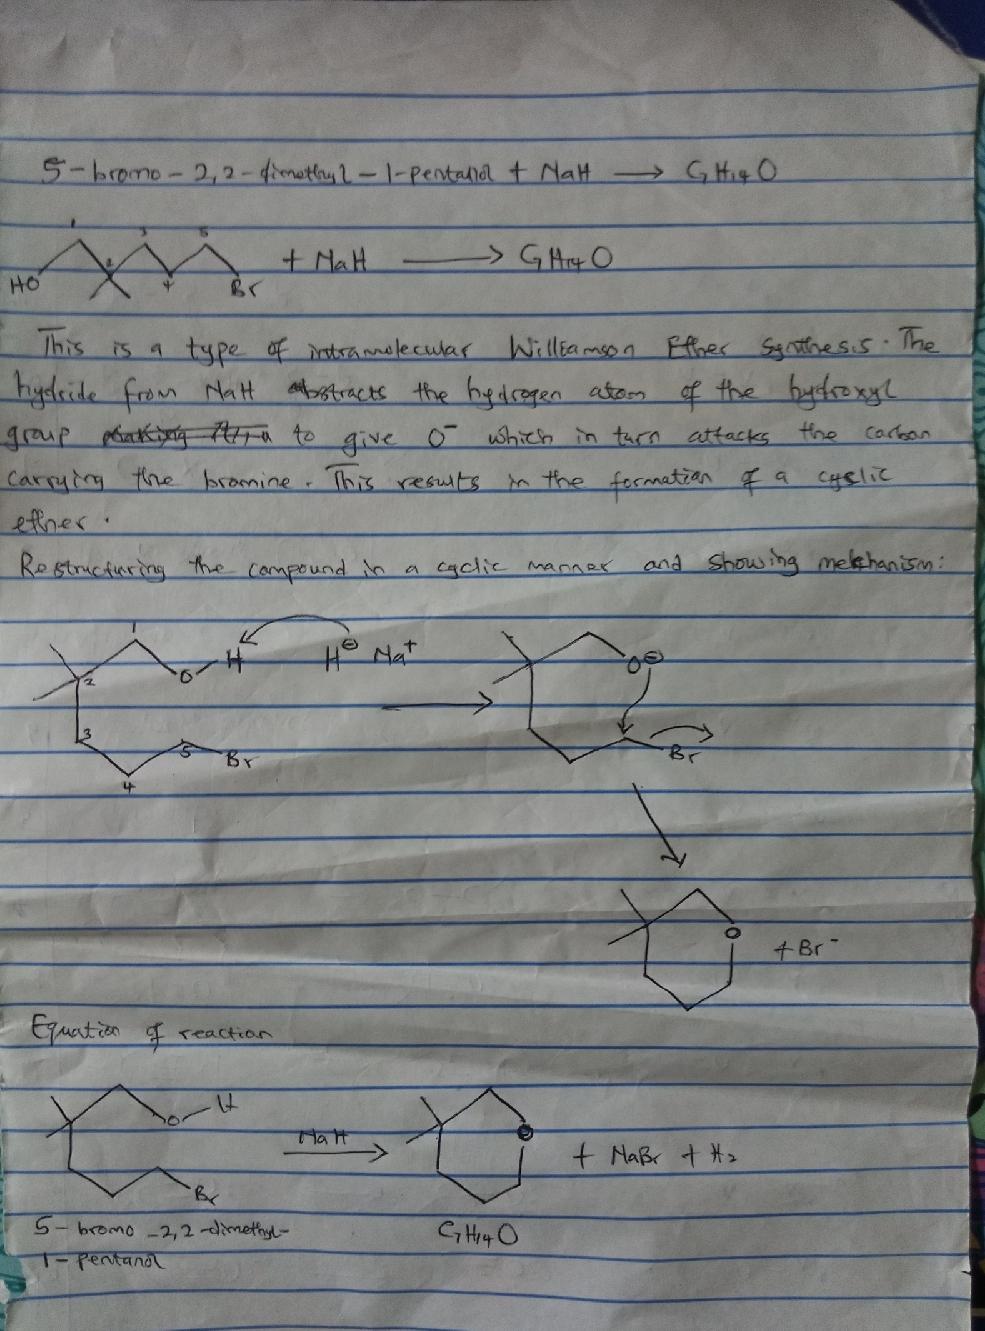 5-bromo-2,2-dimethyl-1-pentanol + NaH → C₇H₁₄O
1 2 3 4 5
HO Br + NaH → C₇H₁₄O
This is a type of intramolecular Williamson Ether Synthesis. The
hydride from NaH abstracts the hydrogen atom of the hydroxyl
group to give O⁻ which in turn attacks the carbon
carrying the bromine. This results in the formation of a cyclic
ether.
Restructuring the compound in a cyclic manner and showing mechanism:
1 2 3 4 5 O H Br H⊖ Na⁺ → O⊖ Br
O + Br⁻
Equation of reaction
O H Br NaH → O + NaBr + H₂
5-bromo-2,2-dimethyl- C₇H₁₄O
1-pentanol